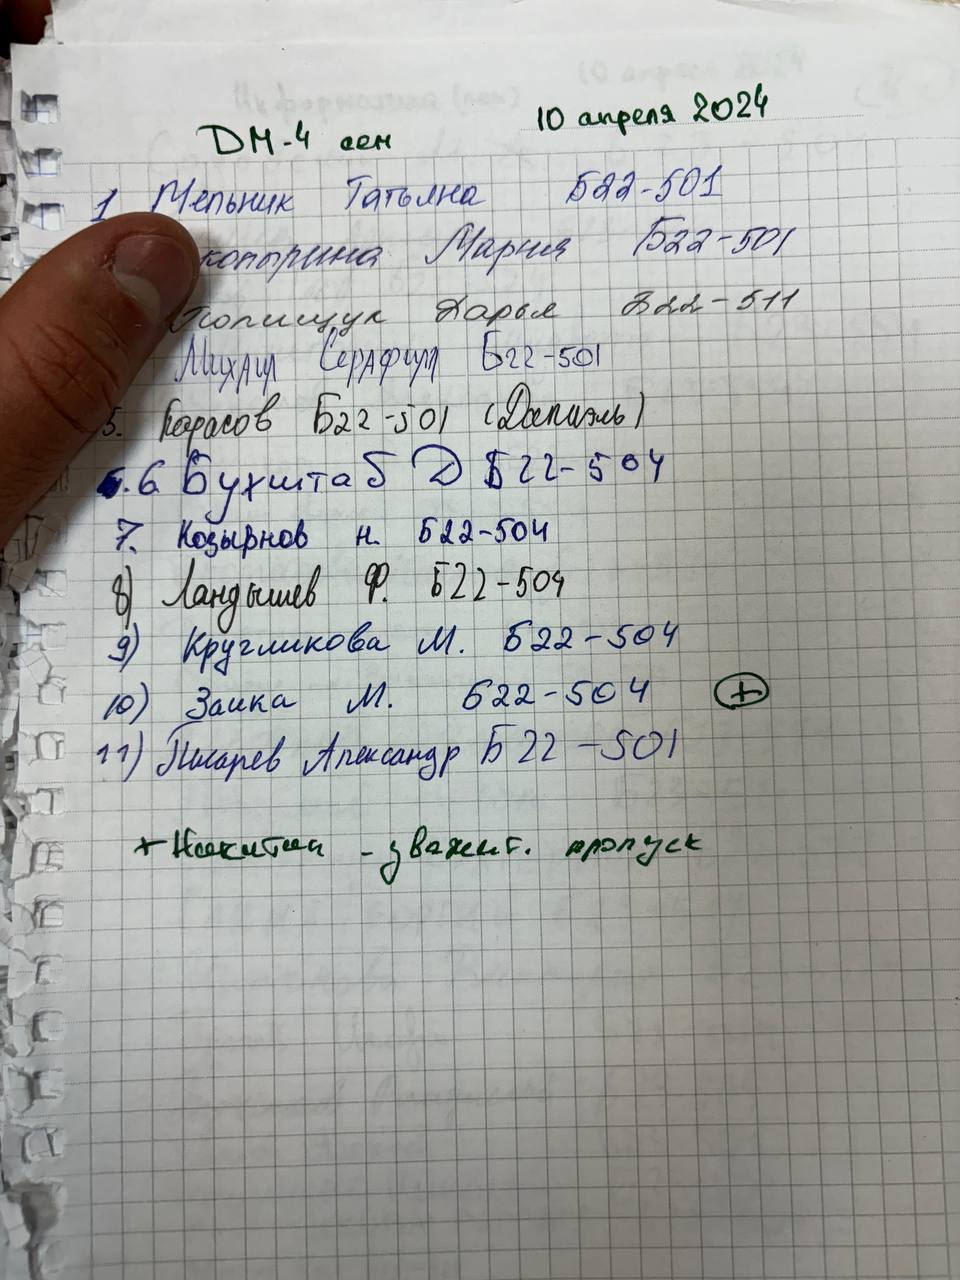 ДМ-4 сем 10 апреля 2024
1 Мельник Татьяна Б22-501
копырина Мария Б22-501
Полищук Дарья Б22-511
Михаил Серафим Б22-501
5. Карасов Б22-501 (Даниэль)
6 Бухштаб Д Б22-504
7. Козырнов н. Б22-504
8) Ландышев Ф. Б22-504
9) Кругликова М. Б22-504
10) Заика М. Б22-504 +
11) Писарев Александр Б22-501
+ Никитин - уважит. пропуск